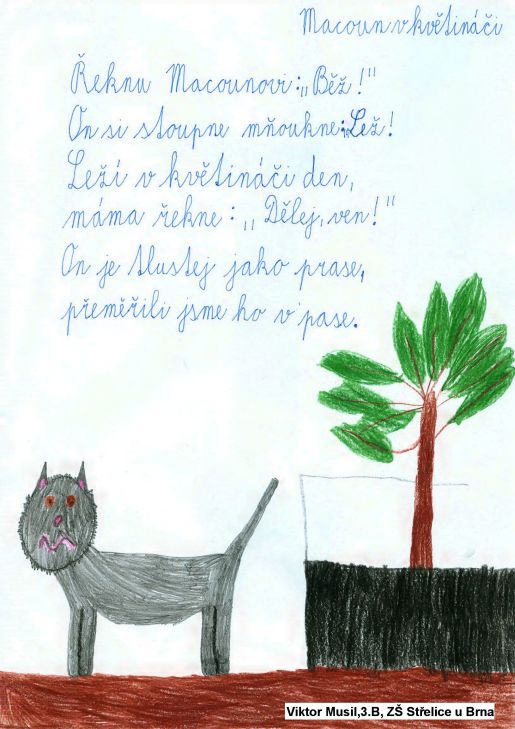 Macoun v květináči
Řeknu Macounovi: „Běž!"
On si stoupne mňoukne: „Lež!
Leží v květináči den,
máma řekne: „Dělej, ven!"
On je tlustej jako prase,
přeměřili jsme ho v pase.
Viktor Musil,3.B, ZŠ Střelice u Brna